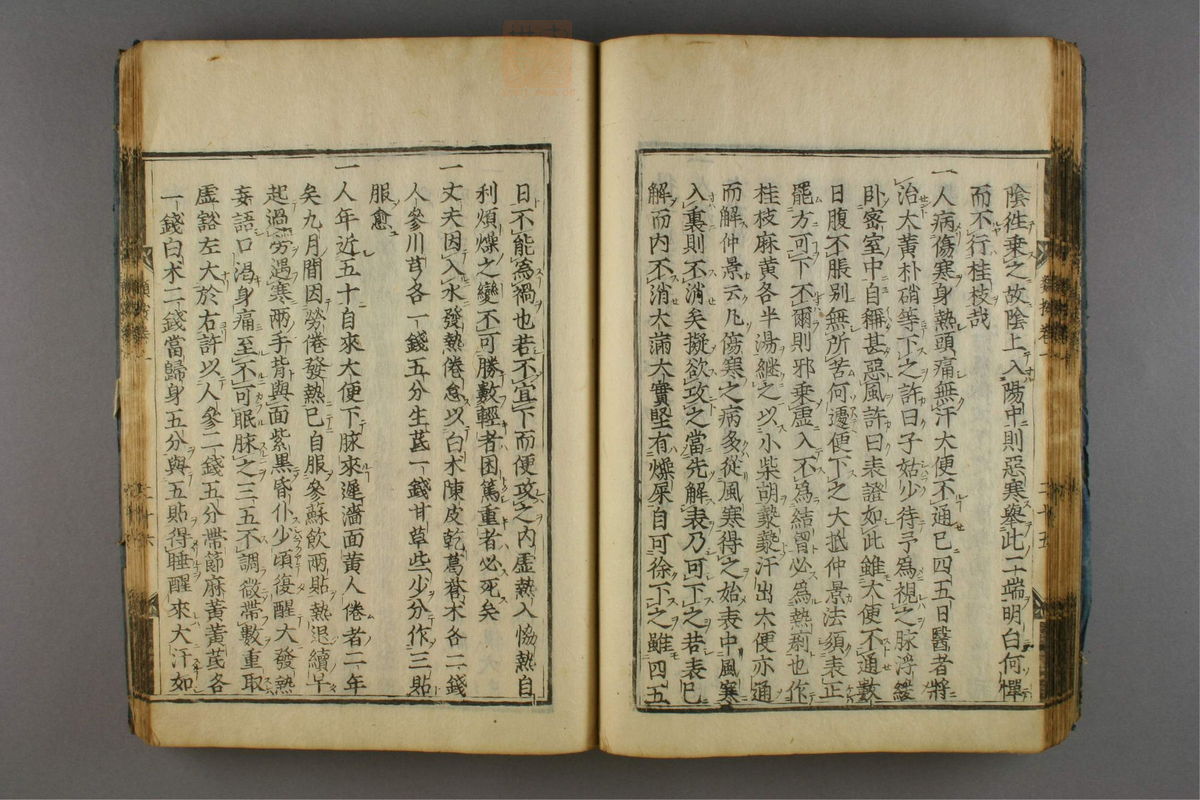 陰徃乗之故陰上入陽中則惡寒舉此二端明白何憚
而不行桂枝哉
一人病傷寒身熱頭痛無汗大便不通已四五日醫者將
治大黄朴硝等下之許曰子姑少待予為視之脉浮緩
卧密室中自稱甚惡風許曰表證如此雖大便不通數
日腹不脹别無所苦何遽便下之大抵仲景法須表正
罷方可下不爾則邪乗虚入不為結胷必為熱痢也作
桂枝麻黄各半湯繼之以小柴胡漐漐汗出大便亦通
而解仲景云凡傷寒之病多從風寒得之始表中風寒
入裏則不消矣擬欲攻之當先解表乃可下之若表已
解而内不消大滿大實堅有燥屎自可徐下之雖四五
日不能為禍也若不宜下而便攻之内虚熱入恊熱自
利煩燥之變不可勝數輕者困篤重者必死矣
一丈夫因入水發熱倦怠以白朮陳皮乾葛蒼朮各二錢
人參川芎各一錢五分生芪一錢甘草些少分作三貼
服愈
一人年近五十自來大便下脉來遲濇面黄人倦者二年
矣九月間因勞倦發熱已自服參蘇飲兩貼熱退續早
起過勞遇寒兩手背與面紫黒昏仆少頃復醒大發熱
妄語口渇身痛至不可眠脉之三五不調微帶數重取
虚豁左大於右許以人參二錢五分帶節麻黄黄芪各
一錢白朮二錢當歸身五分與五貼得睡醒來大汗如